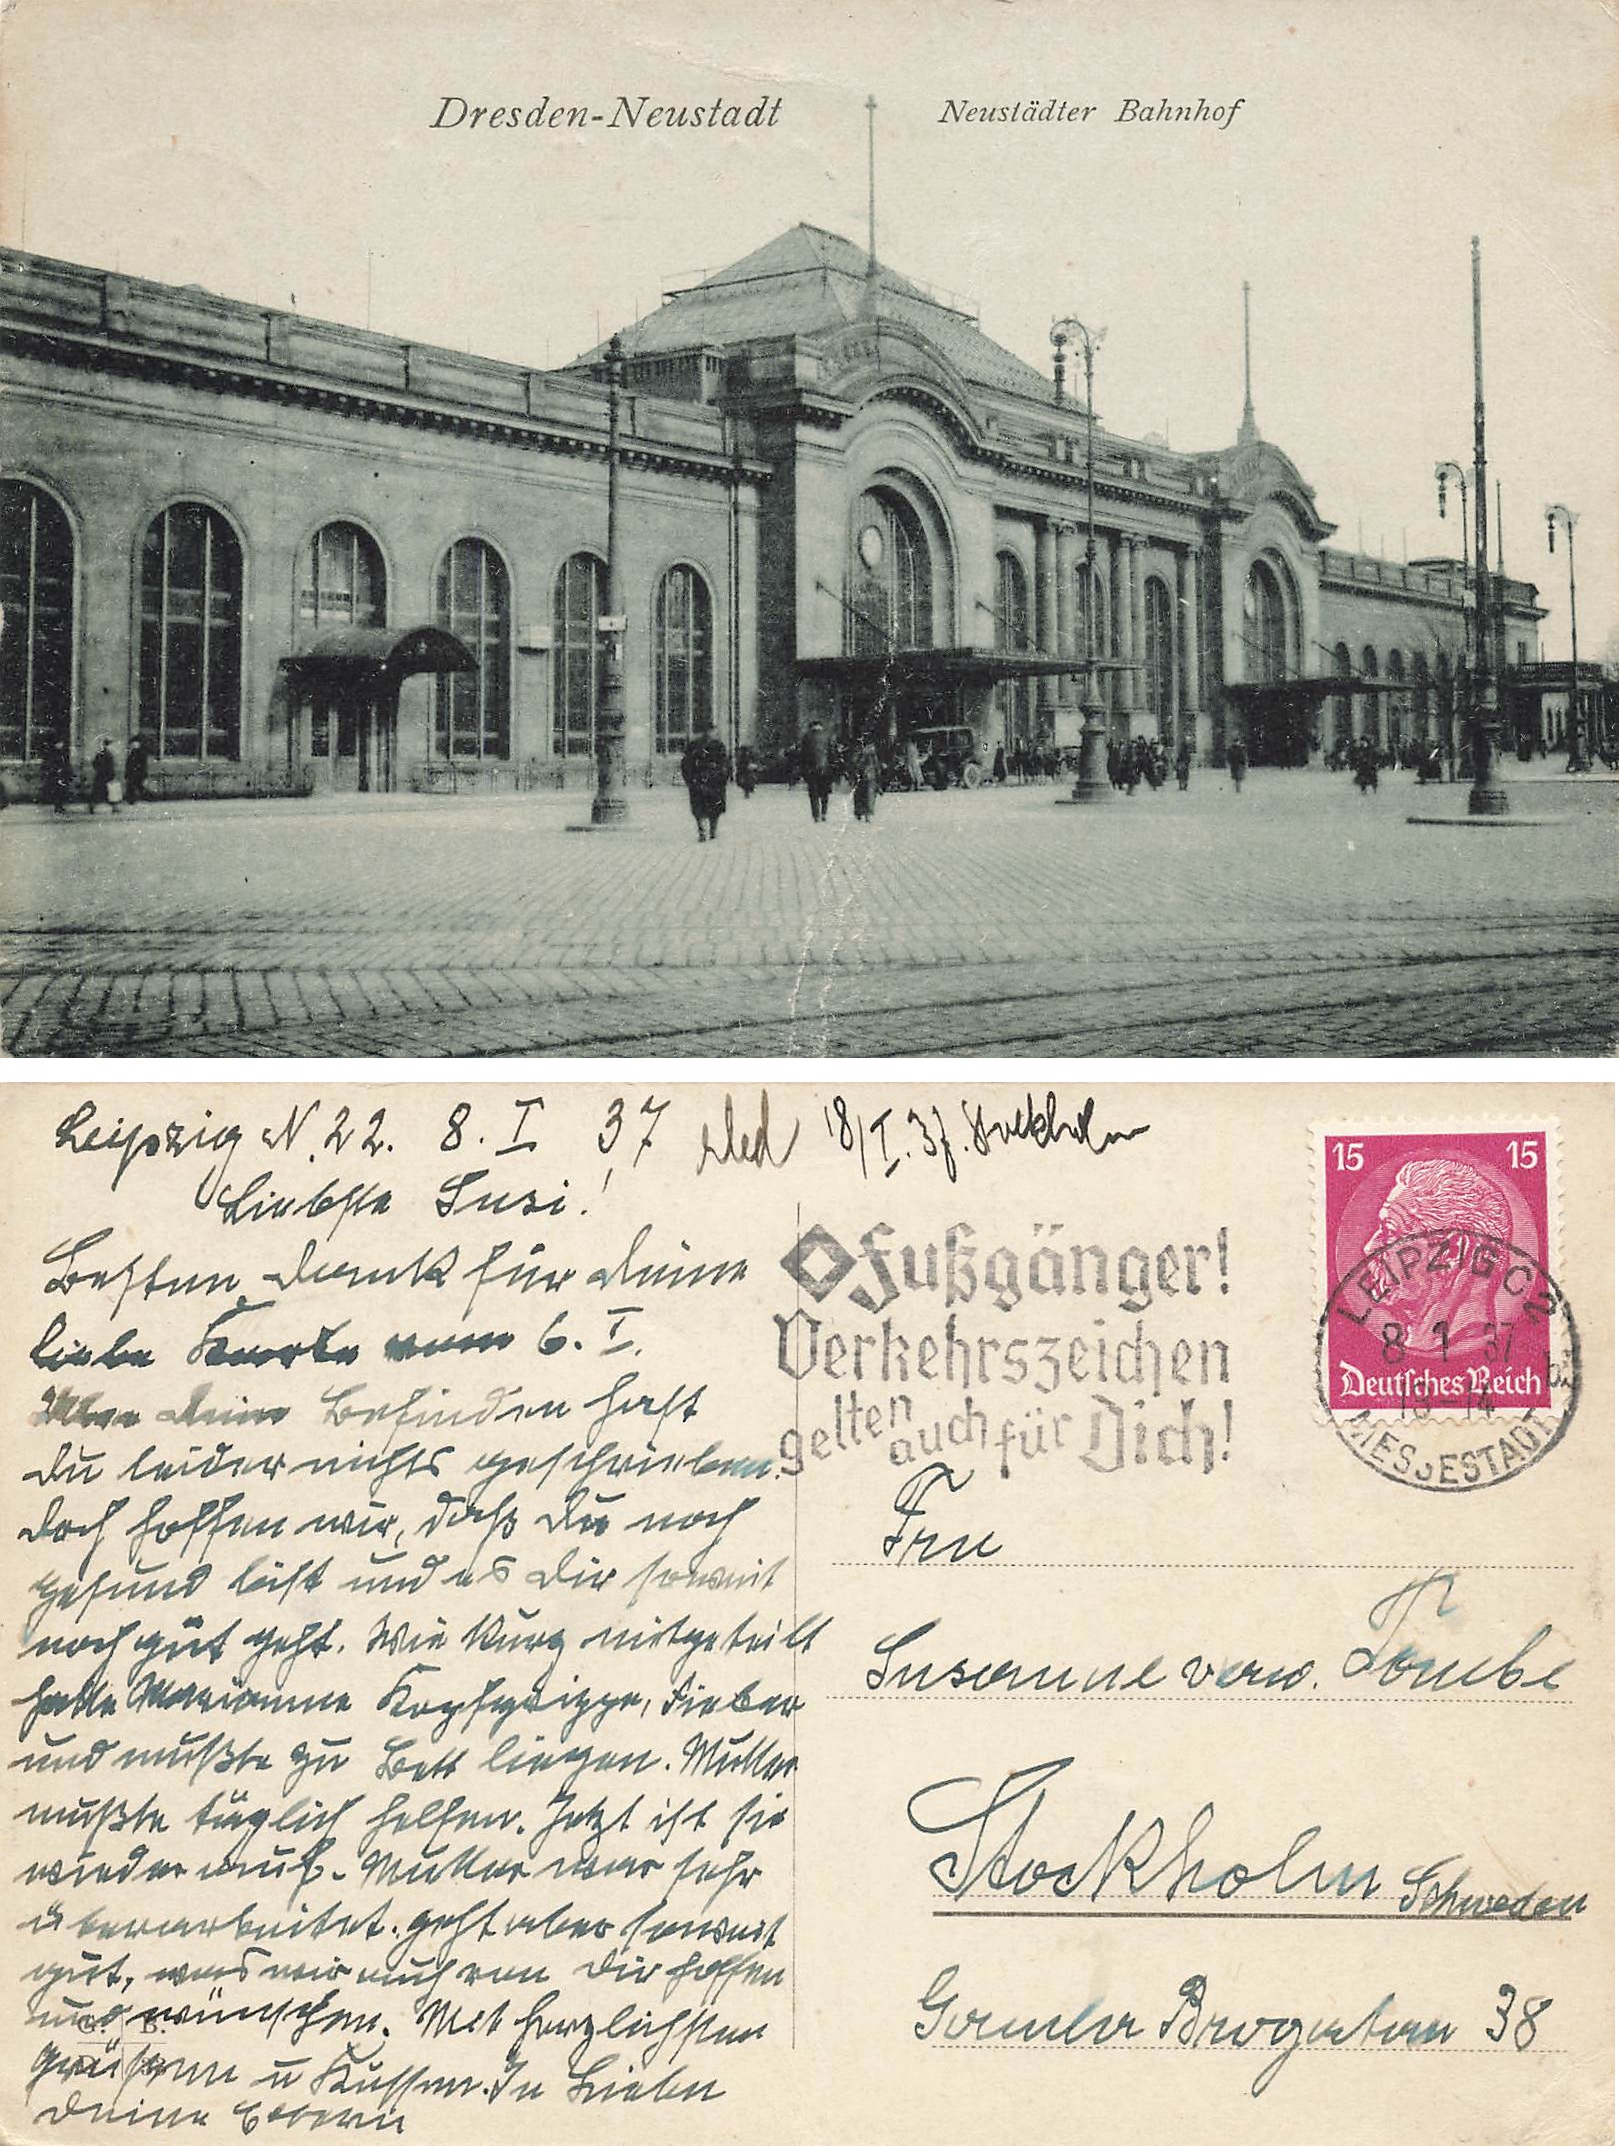 Dresden-Neustadt
Neustädter Bahnhof
Leipzig N. 22. 8. I 37
18/I. 37. Stockholm
Liebste Susi!
Besten Dank für Deine
liebe Karte vom 6. I.
Über Dein Befinden hast
Du leider nichts geschrieben.
Doch hoffen wir, daß Du noch
gesund bist und es Dir soweit
noch gut geht. Wie kurz mitgeteilt
hatte Marianne Kopfgrippe, Fieber
und mußte zu Bett liegen. Mutter
mußte täglich helfen. Jetzt ist sie
wieder auf. Mutter war sehr
überarbeitet. geht aber soweit
gut, was wir auch von Dir hoffen
und wünschen. Mit herzlichsten
Grüßen u Küssen. In Liebe
Deine Eltern
G. B.
Fußgänger!
Verkehrszeichen
gelten auch für Dich!
15 15
Deutsches Reich
LEIPZIG C 2
8 1 37
MESSESTADT
Fru
Susanne verw.
Stockholm Schweden
Gamla Brogatan 38